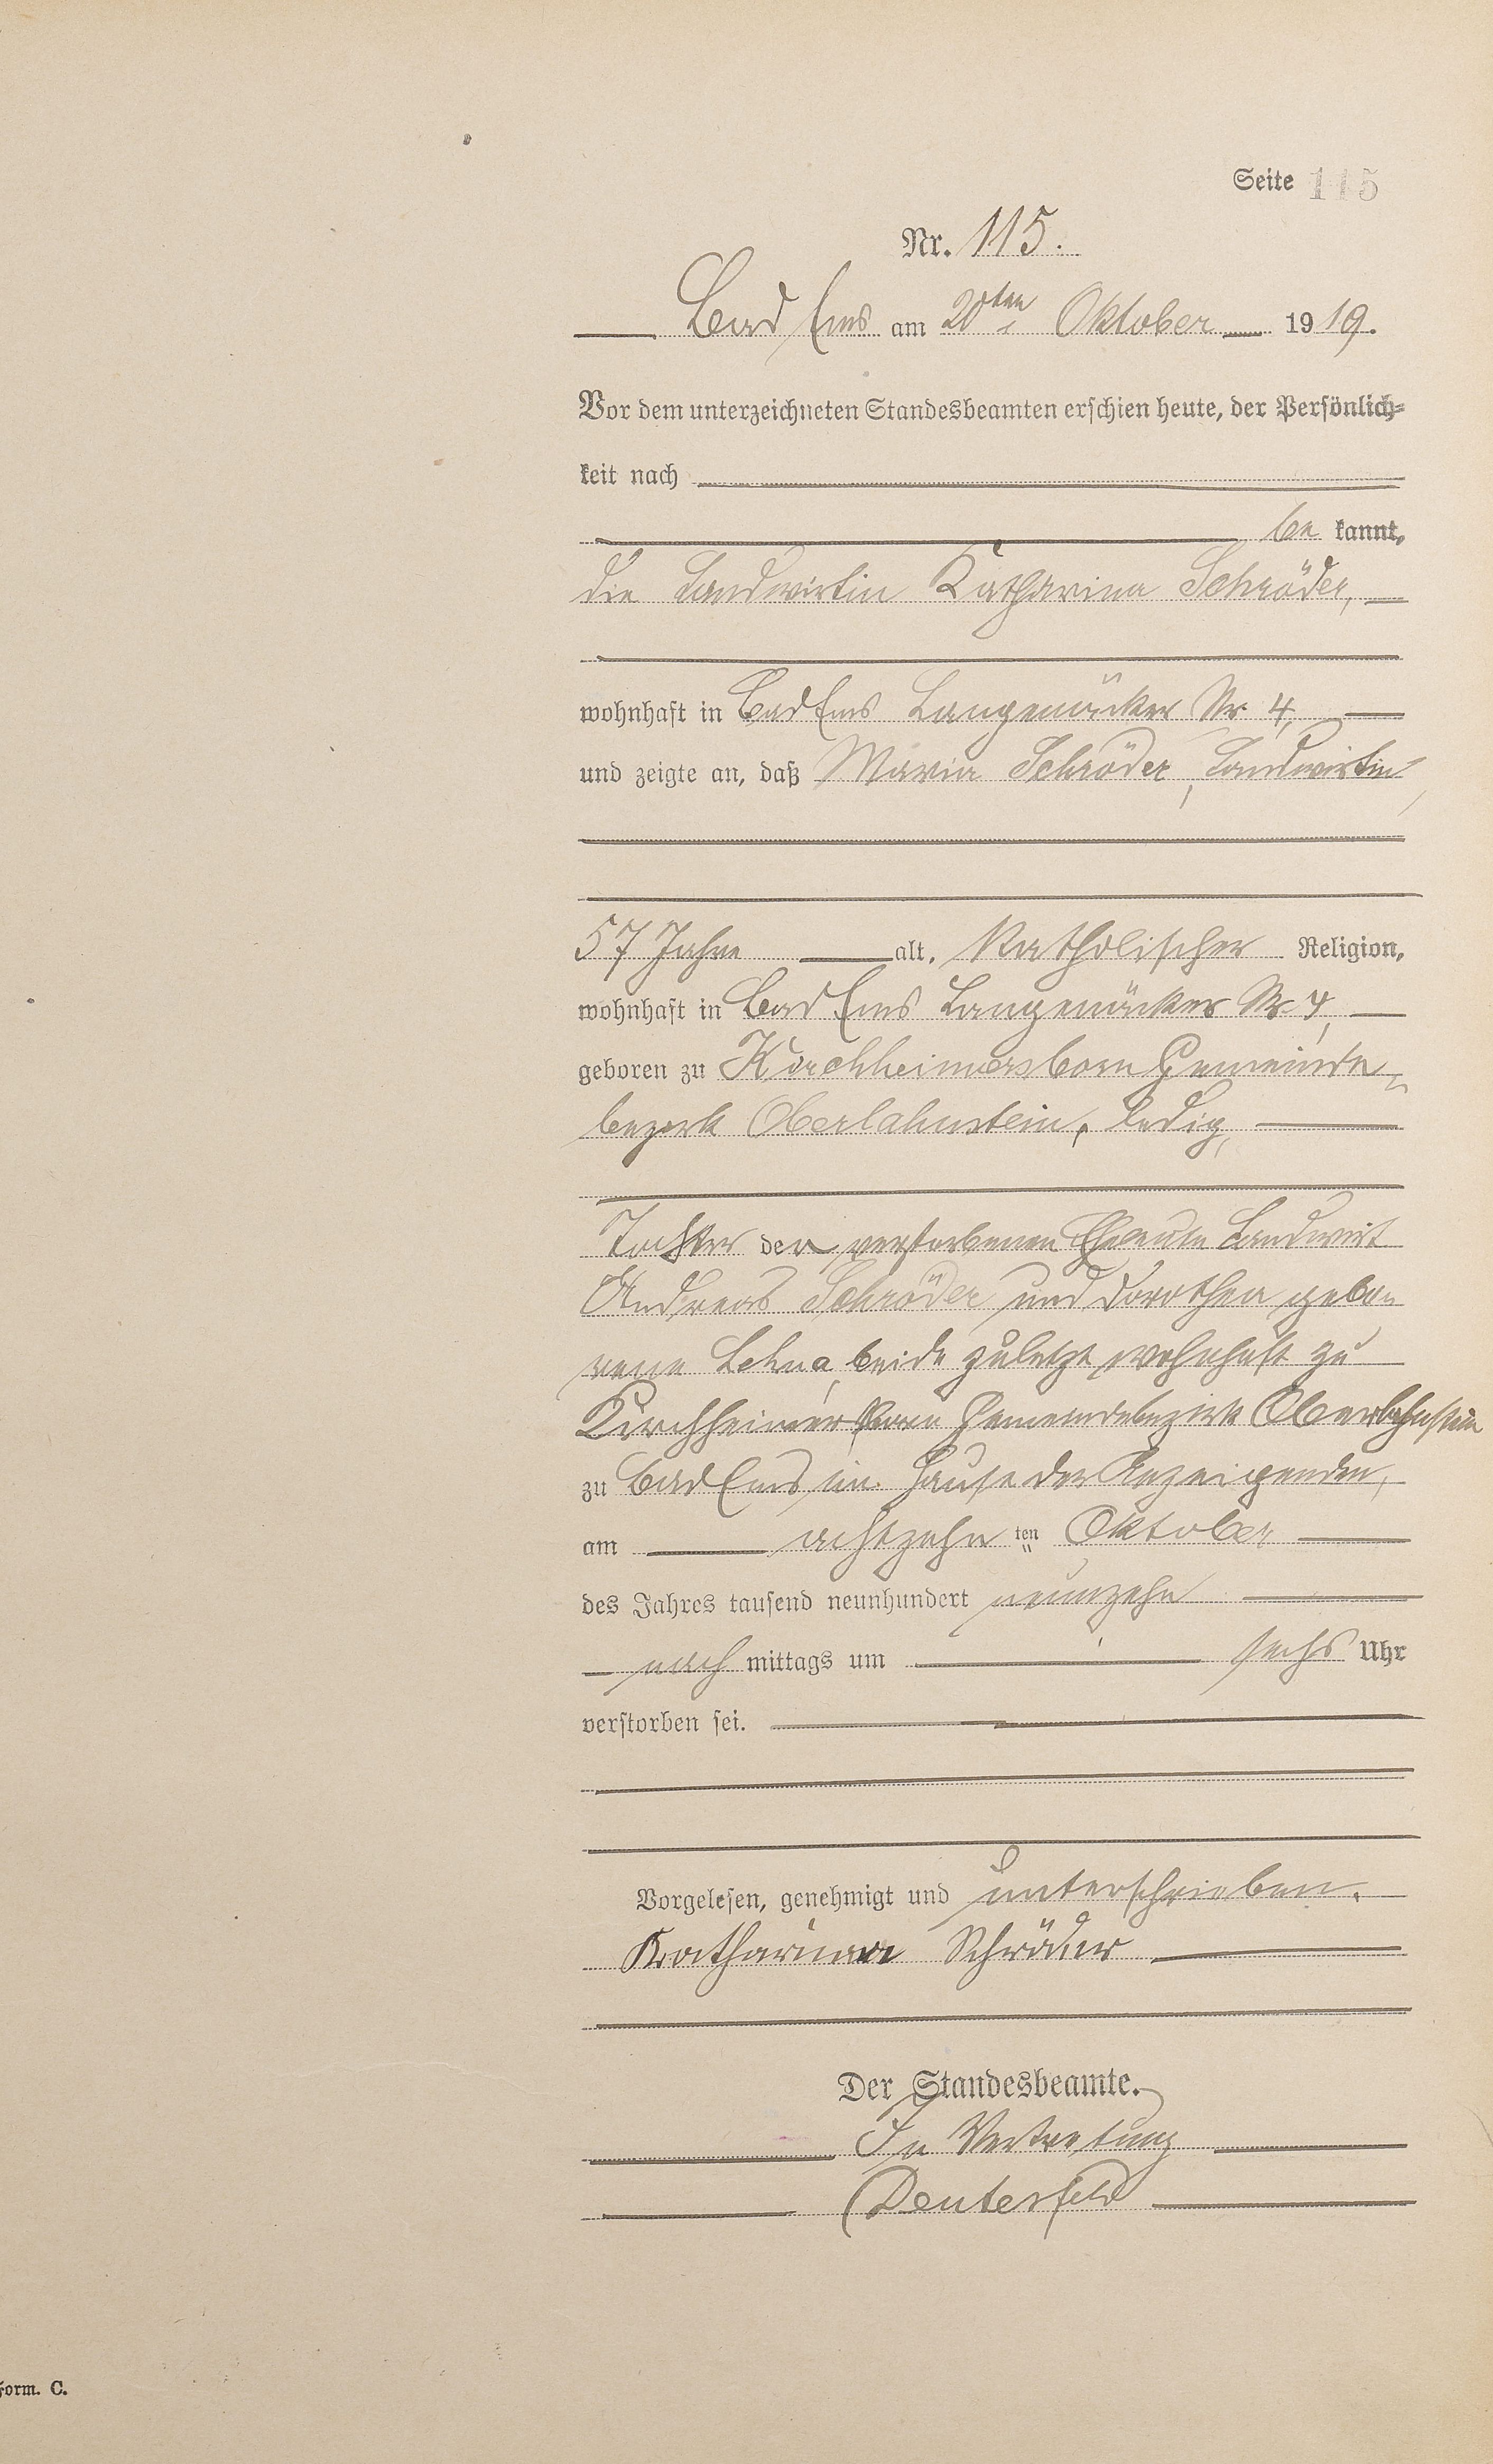 Seite 115
Nr. 115.
Bad Ems am 20ten Oktober 1919.
Vor dem unterzeichneten Standesbeamten erschien heute, der Persönlich-
keit nach
be kannt,
die Landwirtin Katharina Schröder,
wohnhaft in Bad Ems Langenäcker Nr. 4,
und zeigte an, daß Maria Schröder, Landwirtin,
57 Jahre alt, katholischer Religion,
wohnhaft in Bad Ems Langenäcker Nr. 4,
geboren zu Kirchheimersborn Gemeinde-
bezirk Oberlahnstein, ledig,
Tochter der verstorbenen Eheleute Landwirt
Andreas Schröder und Dorothea gebo-
rene beide zuletzt wohnhaft zu
Kirchheimersborn Gemeindebezirk Oberlahnstein
zu Bad Ems im Hause der Anzeigenden,
am achtzehn ten Oktober
des Jahres tausend neunhundert neunzehn
nach mittags um sechs Uhr
verstorben sei.
Vorgelesen, genehmigt und unterschrieben.
Katharina Schröder
Der Standesbeamte.
In Vertretung
Deutesfeld
Form. C.